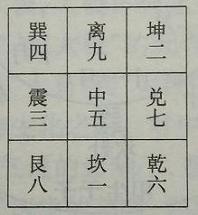 巽四 离九 坤二
震三 中五 兑七
艮八 坎一 乾六